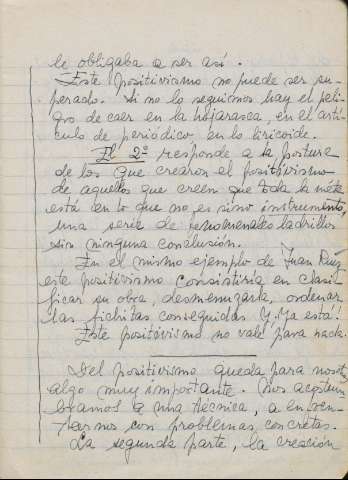 le obligaba a ser así.
Este positivismo no puede ser su-
perado. Si no lo seguimos hay el peli-
gro de caer en la hojarasca, en el artí-
culo de periódico, en lo liricoide.
El 2º responde a la postura
de los que crearon el positivismo
de aquellos que creen que toda la meta
está en lo que no es sino instrumento,
una serie de fenomenales ladrillos
sin ninguna conclusión.
En el mismo ejemplo de Juan Ruiz
este positivismo consistiría en clasi-
ficar su obra, desmenuzarla, ordenar
las fichitas conseguidas y ¡Ya está!!
Este positivismo no vale para nada.
Del positivismo queda para nosot
algo muy importante. Nos acostum
bramos a una técnica, a en-
tarnos con problemas concretos.
La segunda parte, la creación